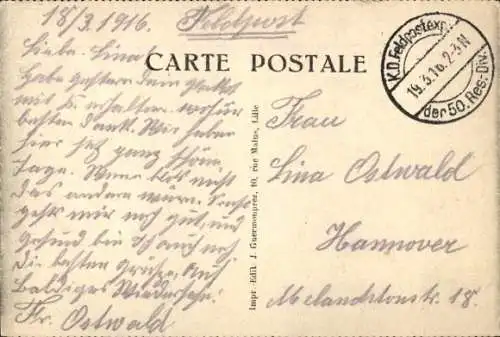 18/3. 1916. Feldpost
CARTE POSTALE
K.D. Feldpostexp.
19.3.16. 2-3 N
der 50. Res.-Div.
Liebe Lina!
Habe gestern dein Paket
mit erhalten. wofür
besten Dank. Wir haben
hier jetzt ganz schöne
Tage. Wenn bloß nicht
das andere wäre. Sonst
geht mir noch gut, und
gesund bin ich auch noch
die besten Grüße. Auf
Baldiges Wiedersehn!
Fr. Ostwald
Impr.-Edit. J. Guermonprez, 10, rue Malus, Lille
Frau
Lina Ostwald
Hannover
Melanchtonstr. 18.